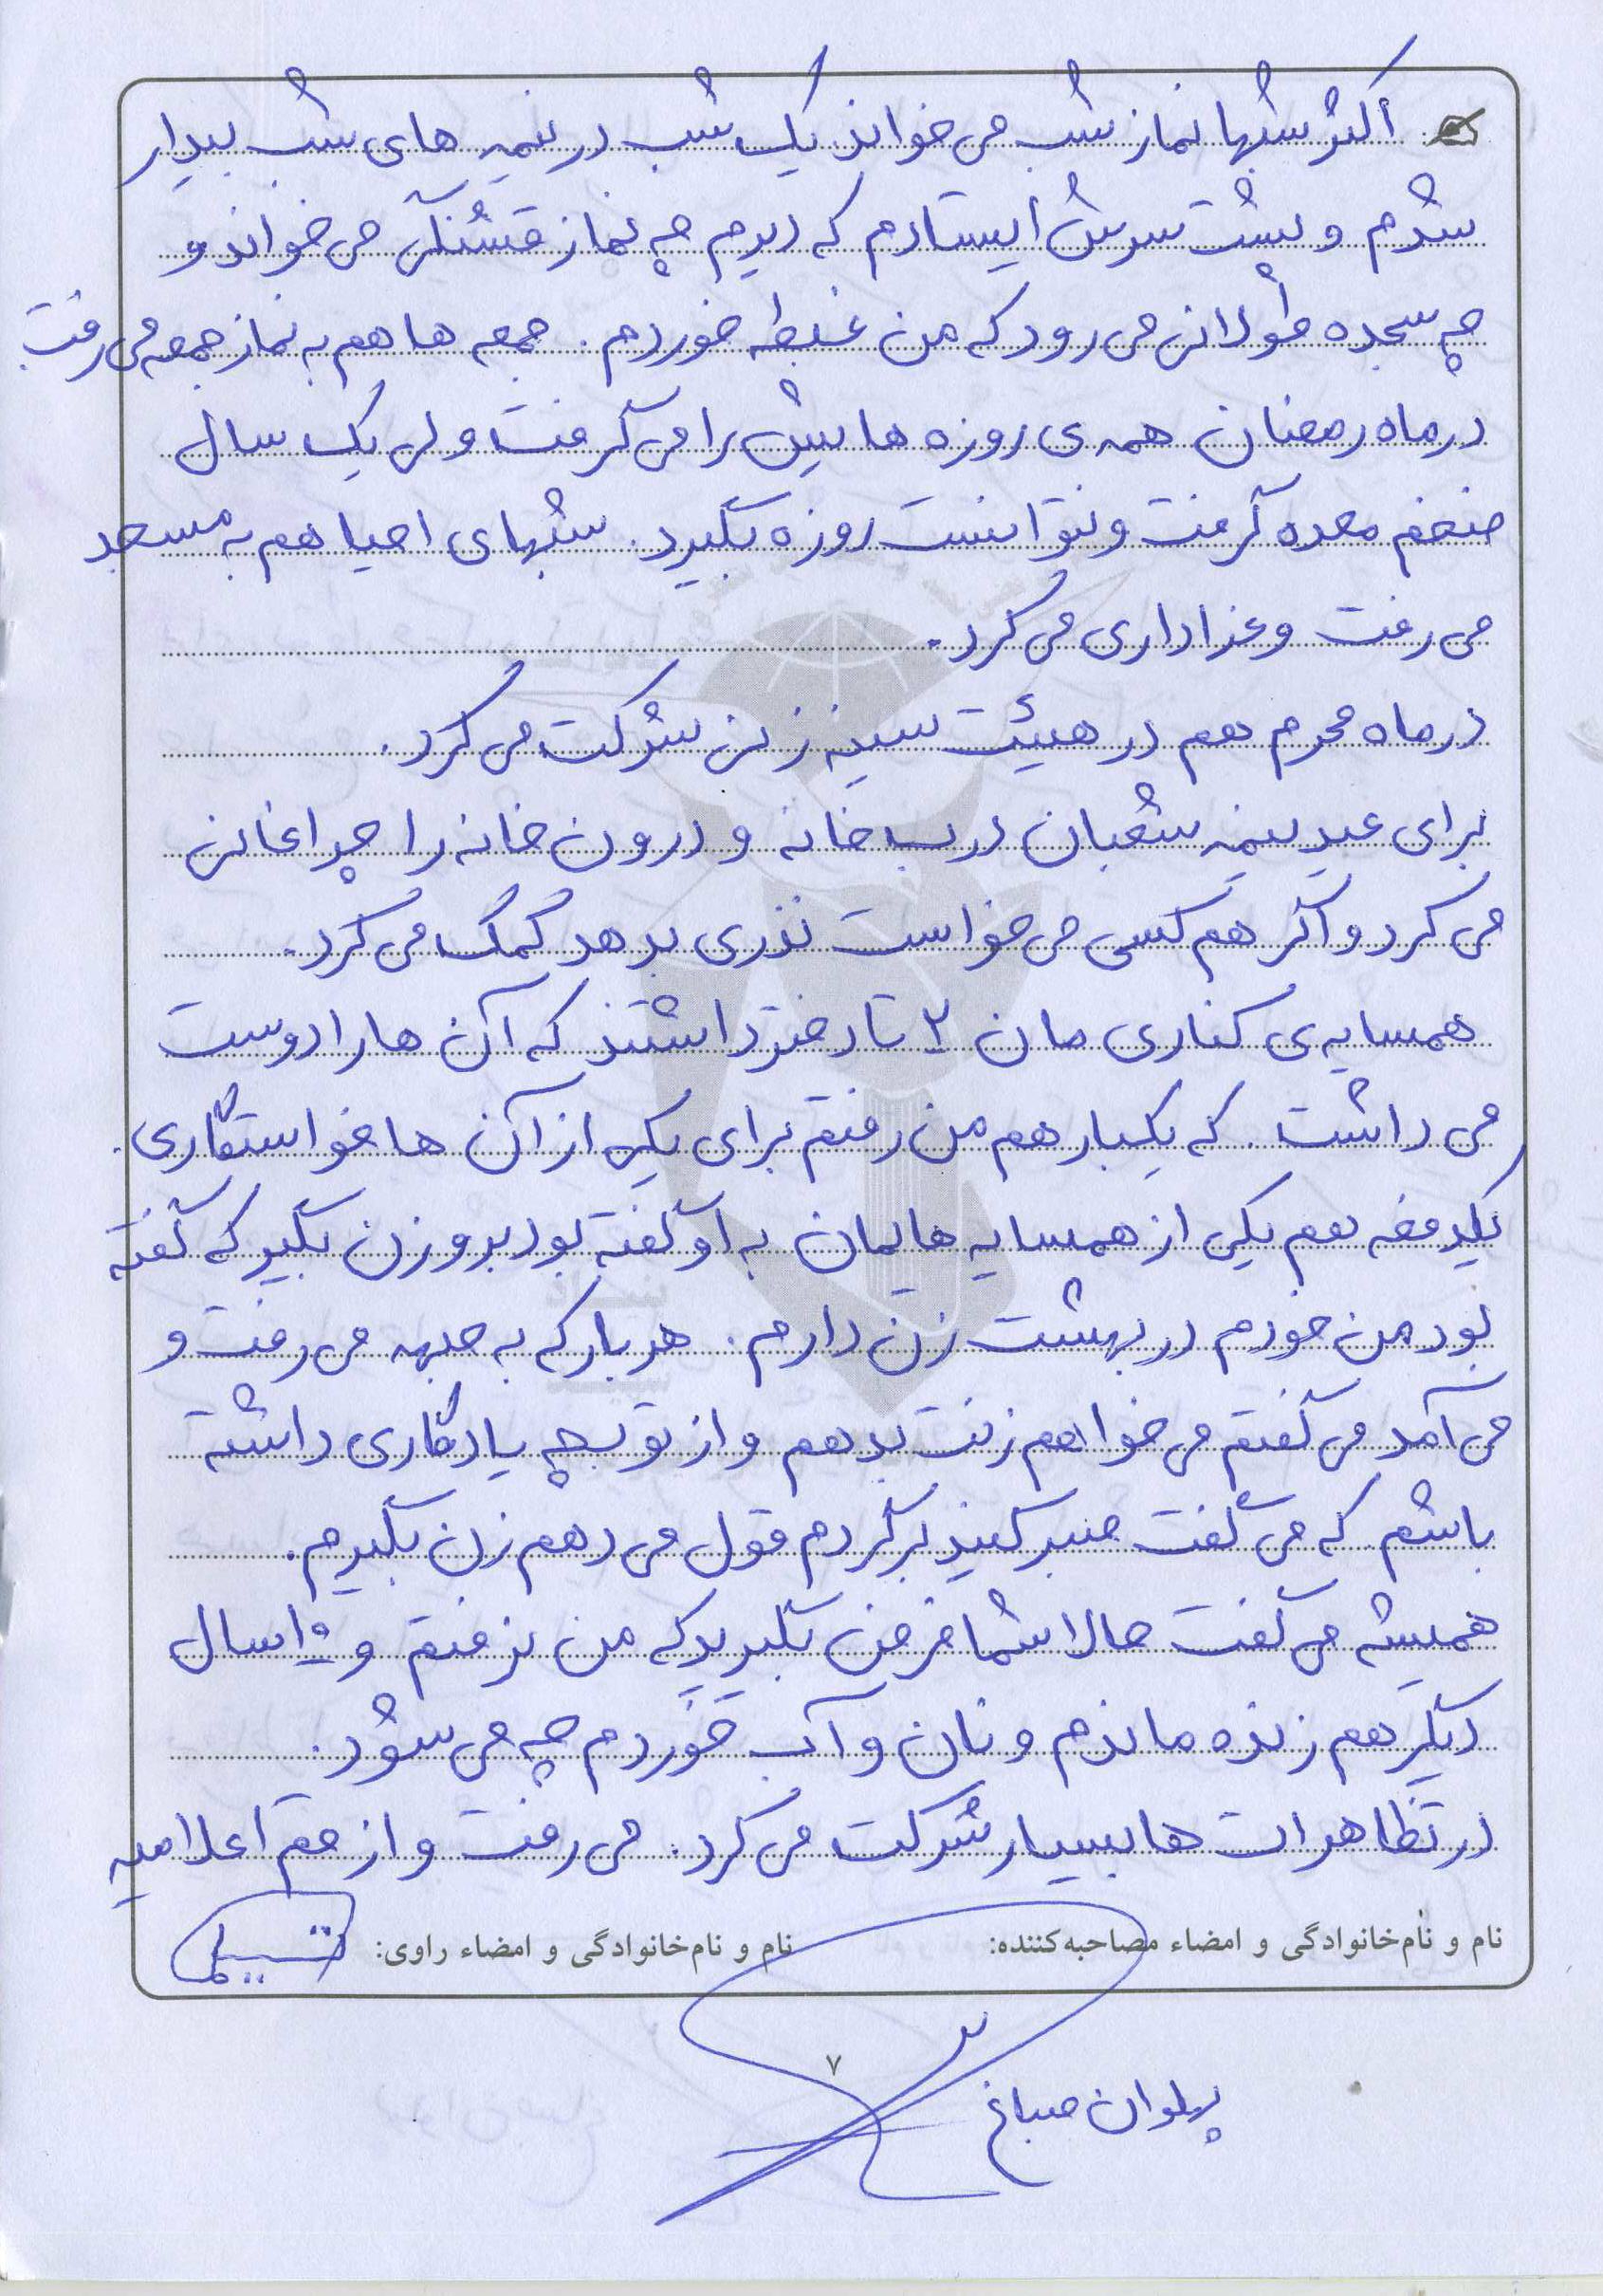 اکثر شبها نماز شب می خواند یک شب در نیمه های شب بیدار
شدم و پشت سرش ایستادم که دیدم چه نماز قشنگی می خواند و
چه سجده طولانی می رود که من غبطه خوردم. جمعه ها هم به نماز جمعه می رفت
در ماه رمضان همه ی روزه هایش را می گرفت ولی یک سال
ضخم معده گرفت و نتوانست روزه بگیرد. شبهای احیا هم به مسجد
می رفت و عزاداری می کرد.
در ماه محرم هم در هیئت سینه زنی شرکت می کرد.
برای عید نیمه شعبان درب خانه و درون خانه را چراغانی
می کرد و اگر هم کسی می خواست نذری بدهد کمک می کرد.
همسایه ی کناری مان ۲ تا دختر داشتند که آن ها را دوست
می داشت. که یکبار هم من رفتم برای یکی از آن ها خواستگاری.
یکدفعه هم یکی از همسایه هایمان به او گفته بود برو زن بگیر که گفته
بود من خودم در بهشت زن دارم. هر بار که به جبهه می رفت و
می آمد می گفتم می خواهم زنت بدهم و از تو بچه یادگاری داشته
باشم. که می گفت صبر کنید برگردم قول می دهم زن بگیرم.
همیشه می گفت حالا شما فرض بگیرید که من نرفتم و ۱۰ سال
دیگر هم زنده ماندم و نان و آب خوردم چه می شود.
در تظاهرات ها بسیار شرکت می کرد. می رفت و از قم اعلامیه
نام و نام‌خانوادگی و امضاء مصاحبه‌کننده: نام و نام‌خانوادگی و امضاء راوی:
۷
پهلوان صباغ